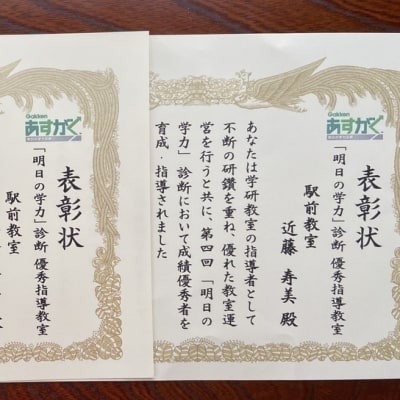 Gakken
あすがく
表彰状
「明日の学力」診断 優秀指導教室
駅前教室
近藤 寿美 殿
あなたは学研教室の指導者として
不断の研鑽を重ね、優れた教室運
営を行うと共に、第四回「明日の
学力」診断において成績優秀者を
育成・指導されました
Gakken
あすがく
表彰状
「明日の学力」診断 優秀指導教室
駅前教室